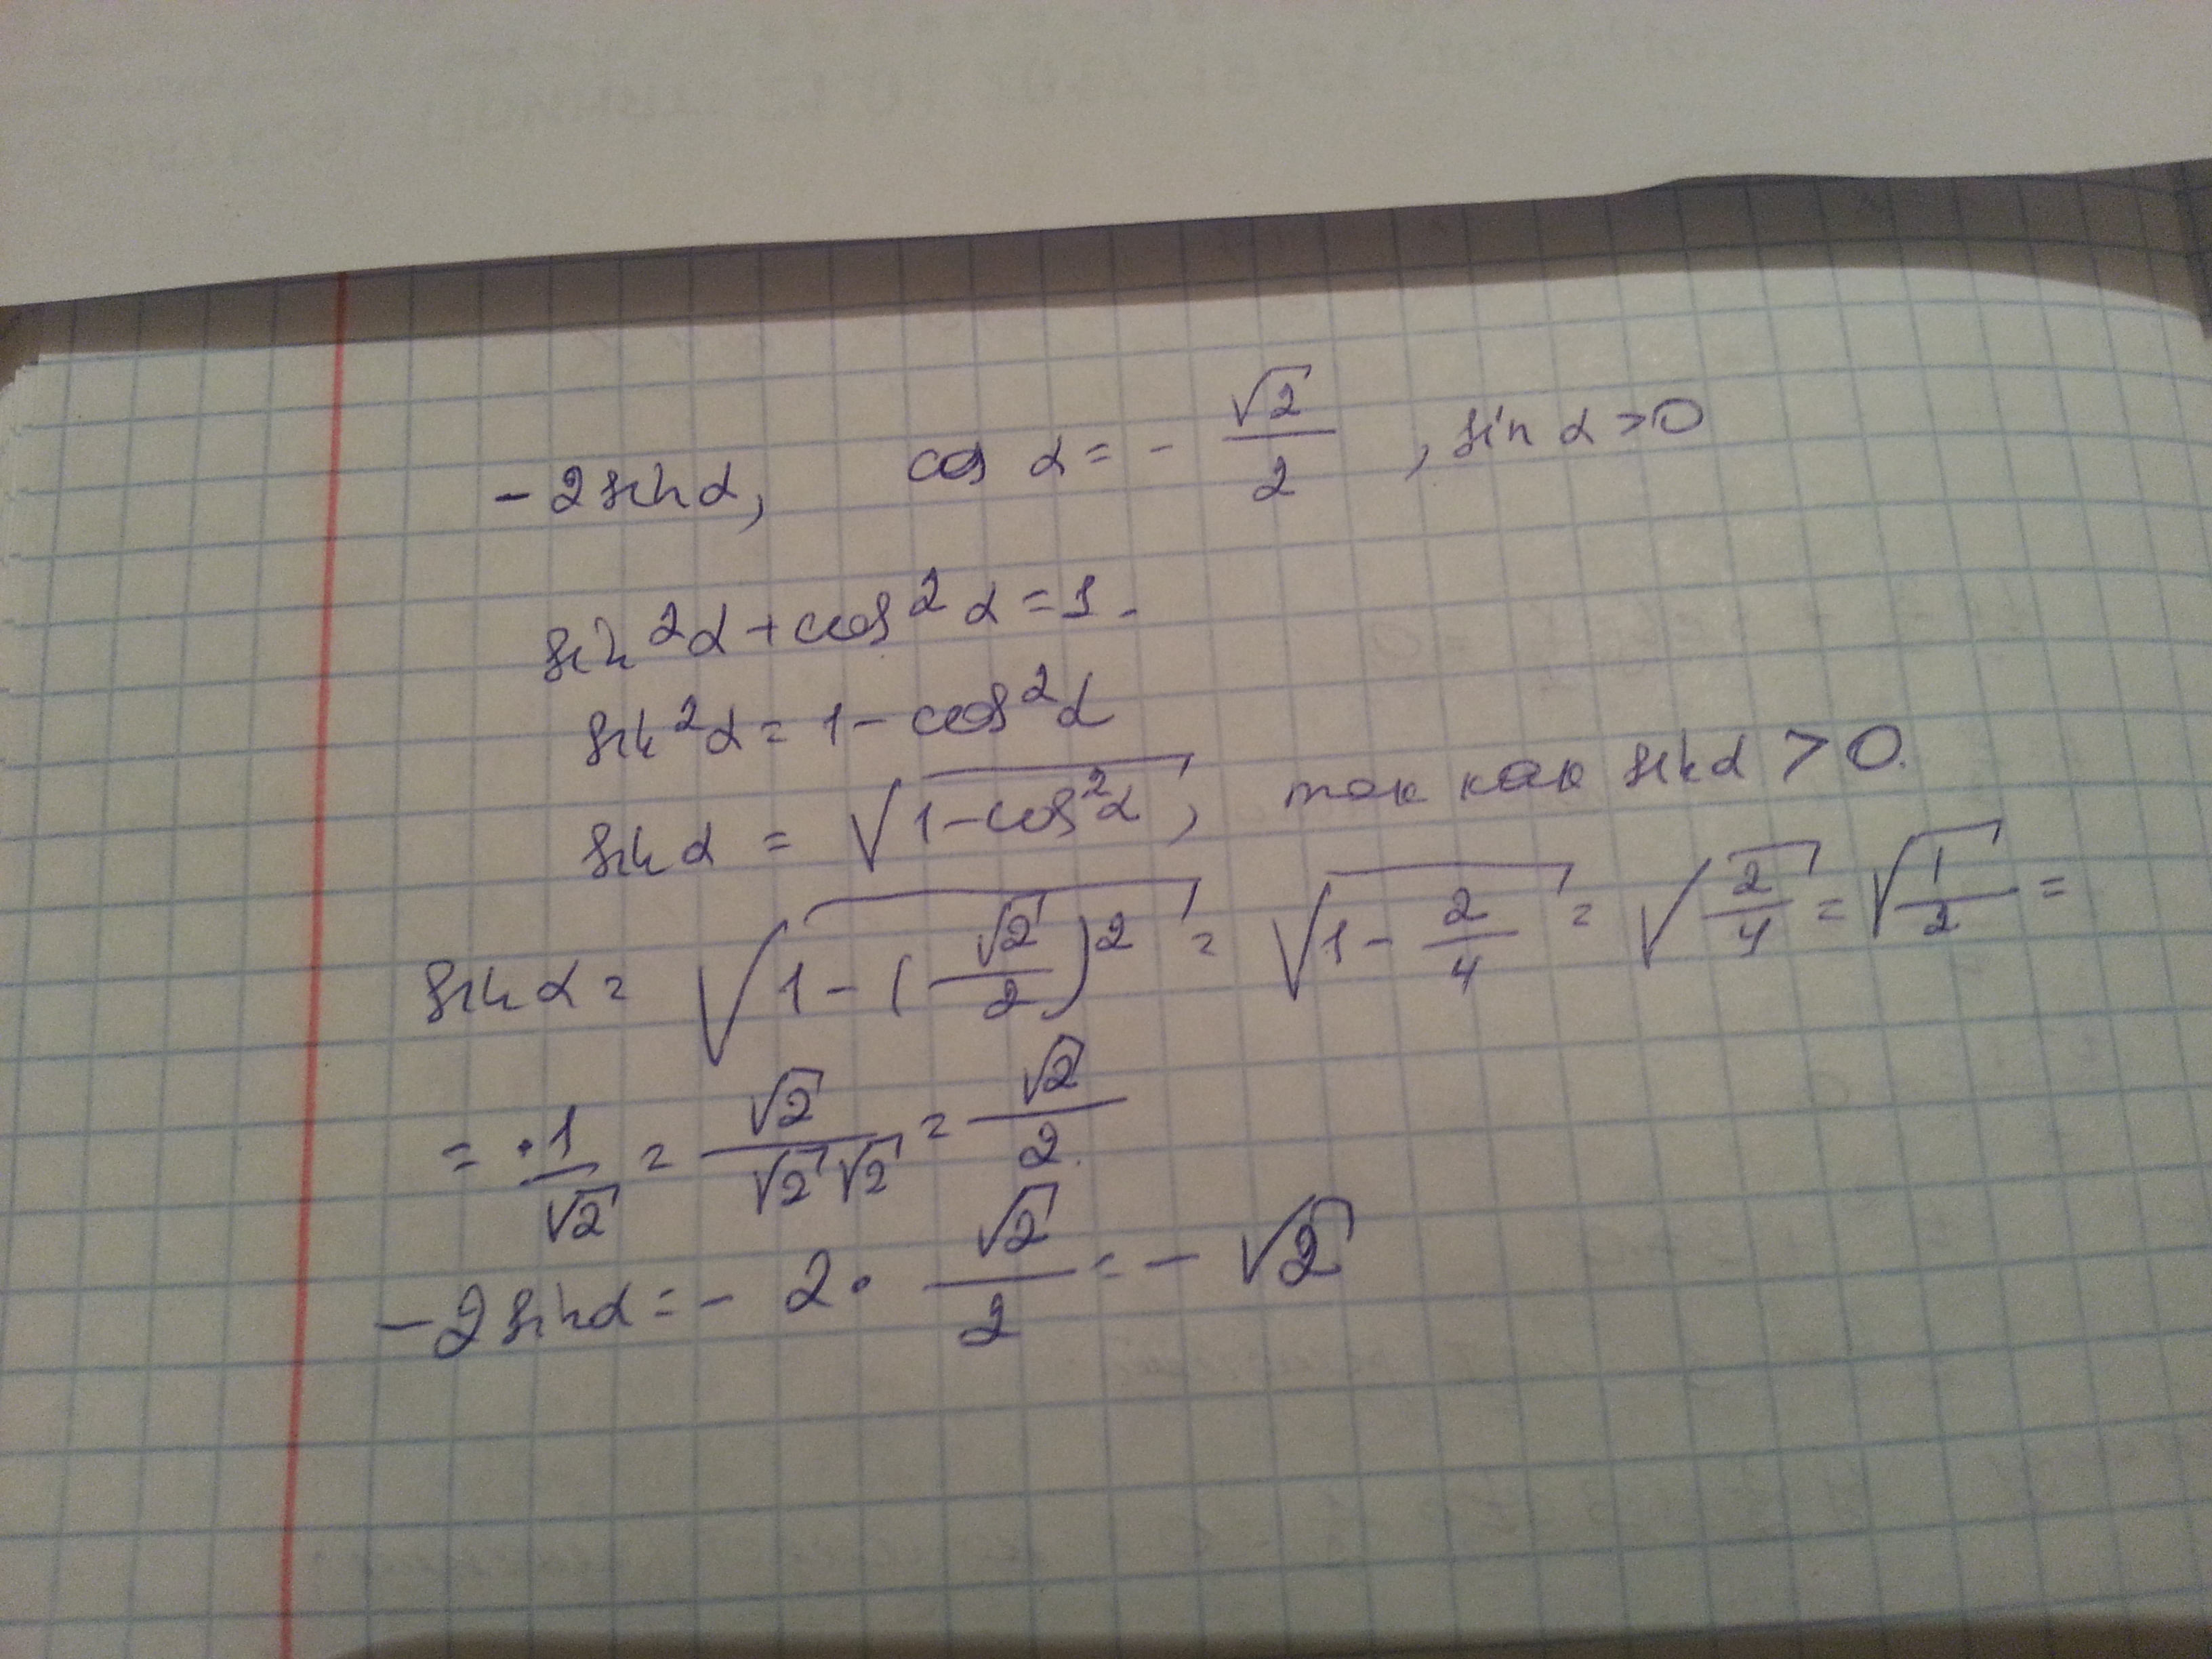 -2sinα, cos α = - √2/2, sin α > 0
sin²α + cos²α = 1.
sin²α = 1 - cos²α
sin α = √(1 - cos²α), так как sin α > 0.
sin α = √(1 - (√2/2)²) = √(1 - 2/4) = √(2/4) = √(1/2) =
= 1/√2 = √2/(√2√2) = √2/2.
-2 sin α = - 2 · √2/2 = - √2